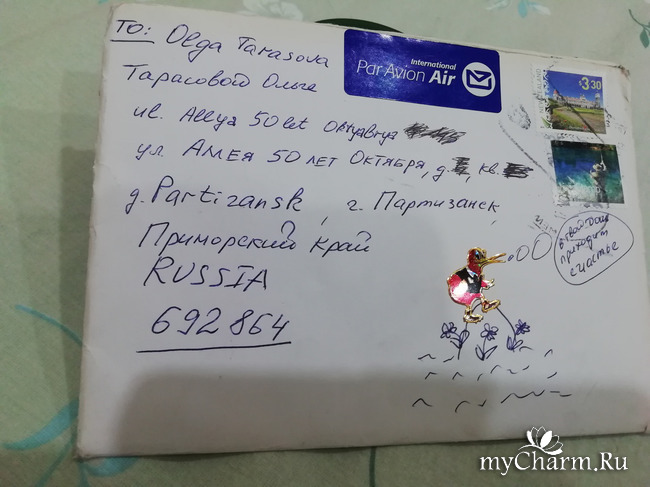 TO: Olga Tarasova
Тарасовой Ольге
ul. Alleya 50 let Oktyabrya
ул. Аллея 50 лет Октября, д. , кв.
g. Partizansk, г. Партизанск,
Приморский край
RUSSIA
692864
International
Par Avion Air
$3.30
в твой дом
приходит
счастье
myCharm.Ru